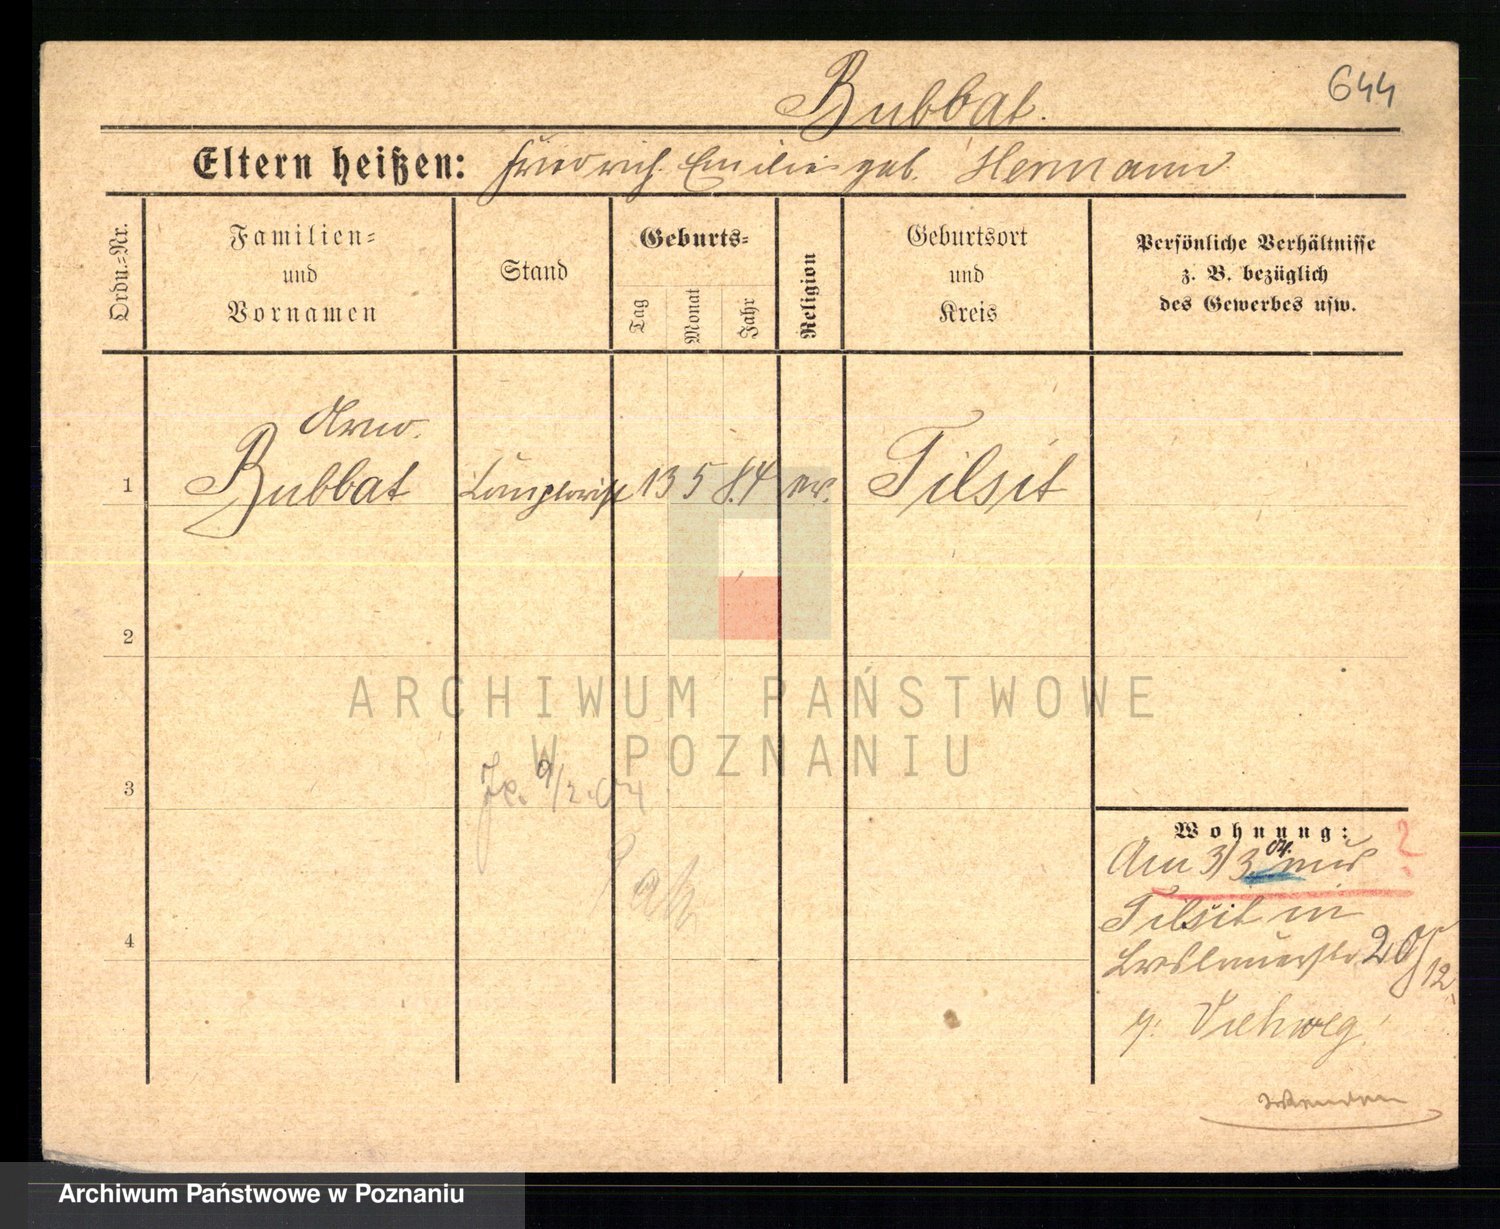 644
Bubbat.
Eltern heißen: Friedrich. Emilie geb. Hermann
Ordn.=Nr.
Familien=
und
Vornamen
Stand
Geburts=
Tag
Monat
Jahr
Religion
Geburtsort
und
Kreis
Persönliche Verhältnisse
z. B. bezüglich
des Gewerbes usw.
Arno.
1 Bubbat Comptorist 13 5 84 ev. Tilsit
2
ARCHIWUM PAŃSTWOWE
W POZNANIU
3
9/2.04
4
Wohnung: ?
Am 3/3.04. aus
Tilsit in
20/12
Viehweg
Wenden
Archiwum Państwowe w Poznaniu